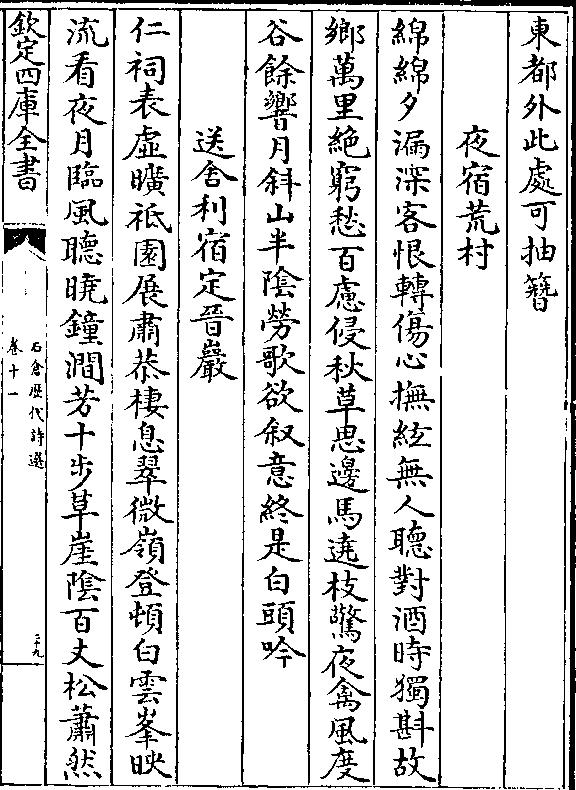 東都外此處可抽簮
夜宿荒村
綿綿夕漏深客恨轉傷心撫絃無人聽對酒時獨斟故
鄉萬里絶窮愁百慮侵秋草思邊馬遶枝驚夜禽風度
谷餘響月斜山半陰勞歌欲叙意終是白頭吟
送舍利宿定晉巖
仁祠表虛曠祇園展肅恭棲息翠微嶺登頓白雲峯映
流看夜月臨風聽曉鐘澗芳十步草崖陰百丈松蕭然
欽定四庫全書
石倉歴代詩選
卷十一
二十九